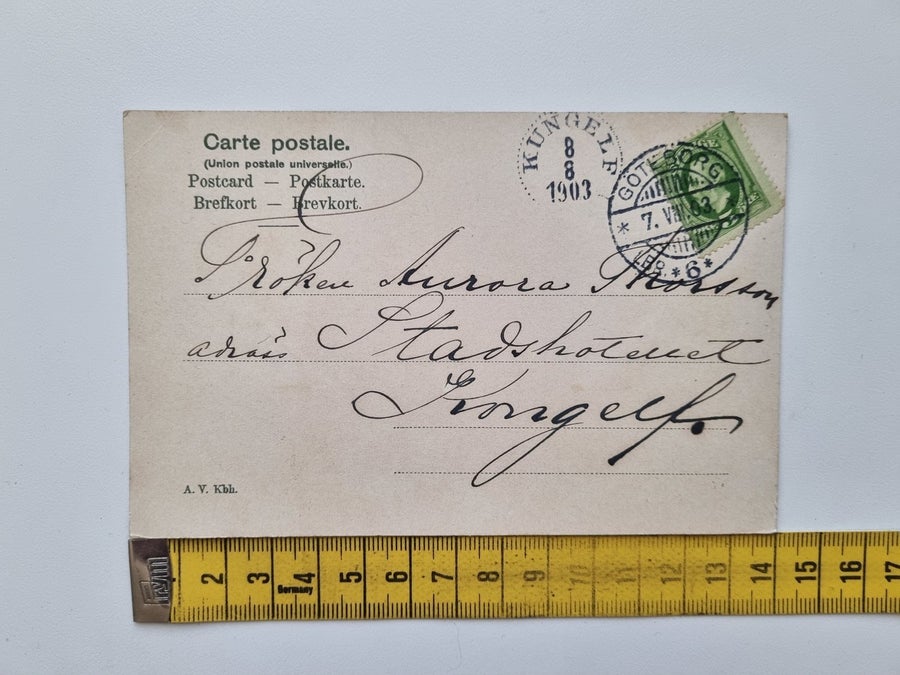 Carte postale.
(Union postale universelle.)
Postcard — Postkarte.
Brefkort — Brevkort.
KUNGELF
8
8
1903
GÖTEBORG
7. VIII. 03
* LBR. *6*
Fröken Aurora Thorsson
adress Stadshotellet
Kongelf.
A. V. Kbh.
2 3 4 5 6 7 8 9 10 11 12 13 14 15 16 17
Germany